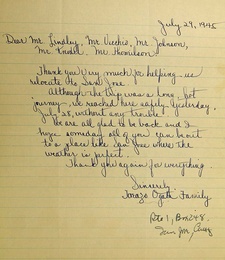 July 29, 1945
Dear Mr. Lindley, Mr. Vecchio, Mr. Johnson,
Mr. Mr.
Thank you very much for helping us
relocate to San Jose.
Although the trip was a long, hot
journey, we reached here safely yesterday,
July 28, without any trouble.
We are all glad to be back and I
hope someday all of you can come out
to a place like San Jose where the
weather is perfect.
Thank you again for everything.
Sincerely,
Family
Rte 1, Box 248
San